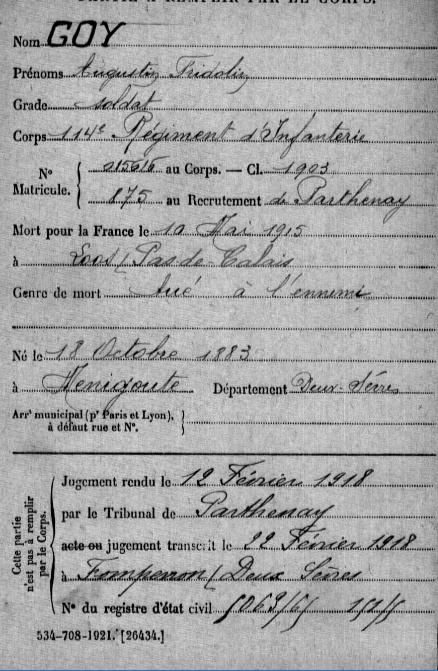 PARTIE A REMPLIR PAR LE CORPS.
Nom GOY
Prénoms Augustin Fridolin
Grade soldat
Corps 114e Régiment d'Infanterie
N° Matricule. { au Corps. — Cl. 1903
875 au Recrutement de Parthenay
Mort pour la France le 10 Mai 1915
à Loos (Pas de Calais
Genre de mort tué à l'ennemi
Né le 18 Octobre 1883
à Menigoute Département Deux-Sèvres
Arrt municipal (pr Paris et Lyon), à défaut rue et N°. }
Cette partie n'est pas à remplir par le Corps.
Jugement rendu le 12 Février 1918
par le Tribunal de Parthenay
acte ou jugement transcrit le 22 Février 1918
à Fomperron (Deux Sèvres
N° du registre d'état civil
534-708-1921. [26434.]